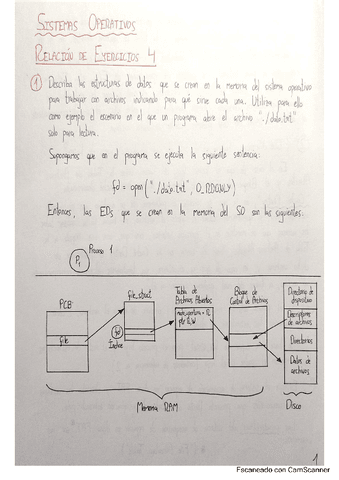 SISTEMAS OPERATIVOS
RELACIÓN DE EJERCICIOS 4
① Describa las estructuras de datos que se crean en la memoria del sistema operativo
para trabajar con archivos indicando para qué sirve cada una. Utiliza para ello
como ejemplo el escenario en el que un programa abre el archivo "./dato.txt"
solo para lectura.
Supongamos que en el programa se ejecuta la siguiente sentencia:
fd = open("./dato.txt", O_RDONLY)
Entonces, las EDs que se crean en la memoria del SO son las siguientes:
P1 Proceso 1
PCB
file
file_struct
fd
Índice
Tabla de
Archivos Abiertos
ptr R/W
Bloque de
Control de Archivos
Directorio de
dispositivo
Descriptores
de archivos
Directorios
Datos de
archivos
Memoria RAM
Disco
1
Escaneado con CamScanner